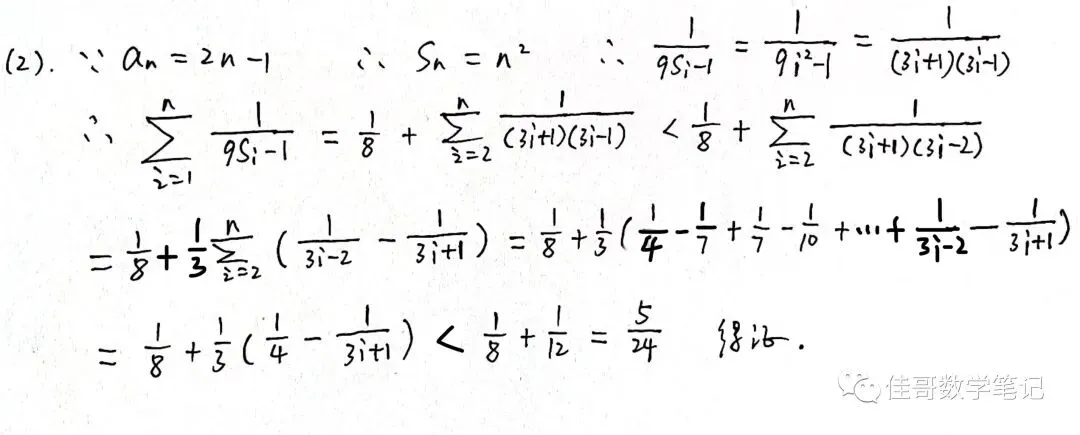 (2). ∵ aₙ = 2n-1 ∴ Sₙ = n² ∴ 1/(9Sᵢ-1) = 1/(9i²-1) = 1/((3i+1)(3i-1))
∴ ∑_{i=1}^{n} 1/(9Sᵢ-1) = 1/8 + ∑_{i=2}^{n} 1/((3i+1)(3i-1)) < 1/8 + ∑_{i=2}^{n} 1/((3i+1)(3i-2))
= 1/8 + 1/3 ∑_{i=2}^{n} (1/(3i-2) - 1/(3i+1)) = 1/8 + 1/3 (1/4 - 1/7 + 1/7 - 1/10 + ... + 1/(3i-2) - 1/(3i+1))
= 1/8 + 1/3 (1/4 - 1/(3i+1)) < 1/8 + 1/12 = 5/24 得证.
佳哥数学笔记